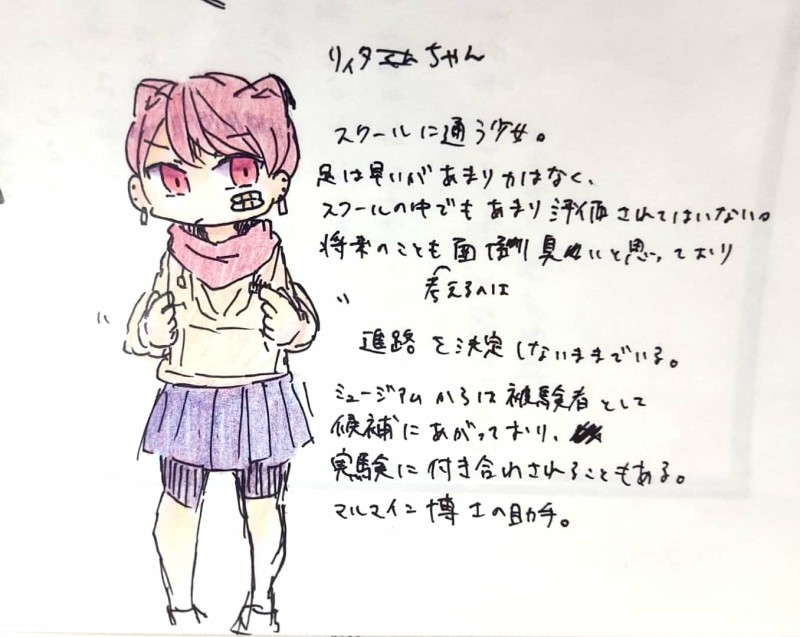 リィタちゃん
スクールに通う少女。
足は早いがあまり力はなく、
スクールの中でもあまり評価されてはいない。
将来のことも面倒くさいと思っており
考えるのは
進路を決定しないままでいる。
ミュージアムからは被験者として
候補にあがっており、
実験に付き合わされることもある。
マルマイン博士の助手。